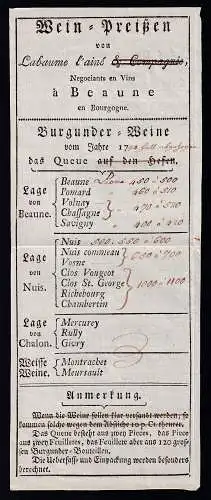 Wein-Preißen
von
Labaume l'ainé & Compagnie,
Negociants en Vins
à Beaune
en Bourgogne.
Burgunder-Weine
vom Jahre 17
das Queue auf den Hefen.
Lage von Beaune.
Beaune 450 à 500
Pomard 460 à 510
Volnay
Chassagne 470 à 520
Savigny 400 à 450
Lage von Nuis.
Nuis 500. 550 à 600
Nuis commeau
Vosne 600 à 700
Clos Vougeot
Clos St. George 1000 à 1100
Richebourg
Chambertin
Lage von Chalon.
Mercurey
Rully
Givry
Weisse Weine.
Montrachet
Meursault
Anmerkung.
Wenn die Weine sollen klar versandt werden, so
kommen solche wegen dem Abstiche 10 p. Ct. theurer.
Das Queue besteht aus zwey Pieces, das Piece
aus zwey Feuillettes, das Feuillete aber aus 120 grossen
Burgunder-Bouteillen.
Die Ueberfuhr und Einpackung werden besonders
berechnet.